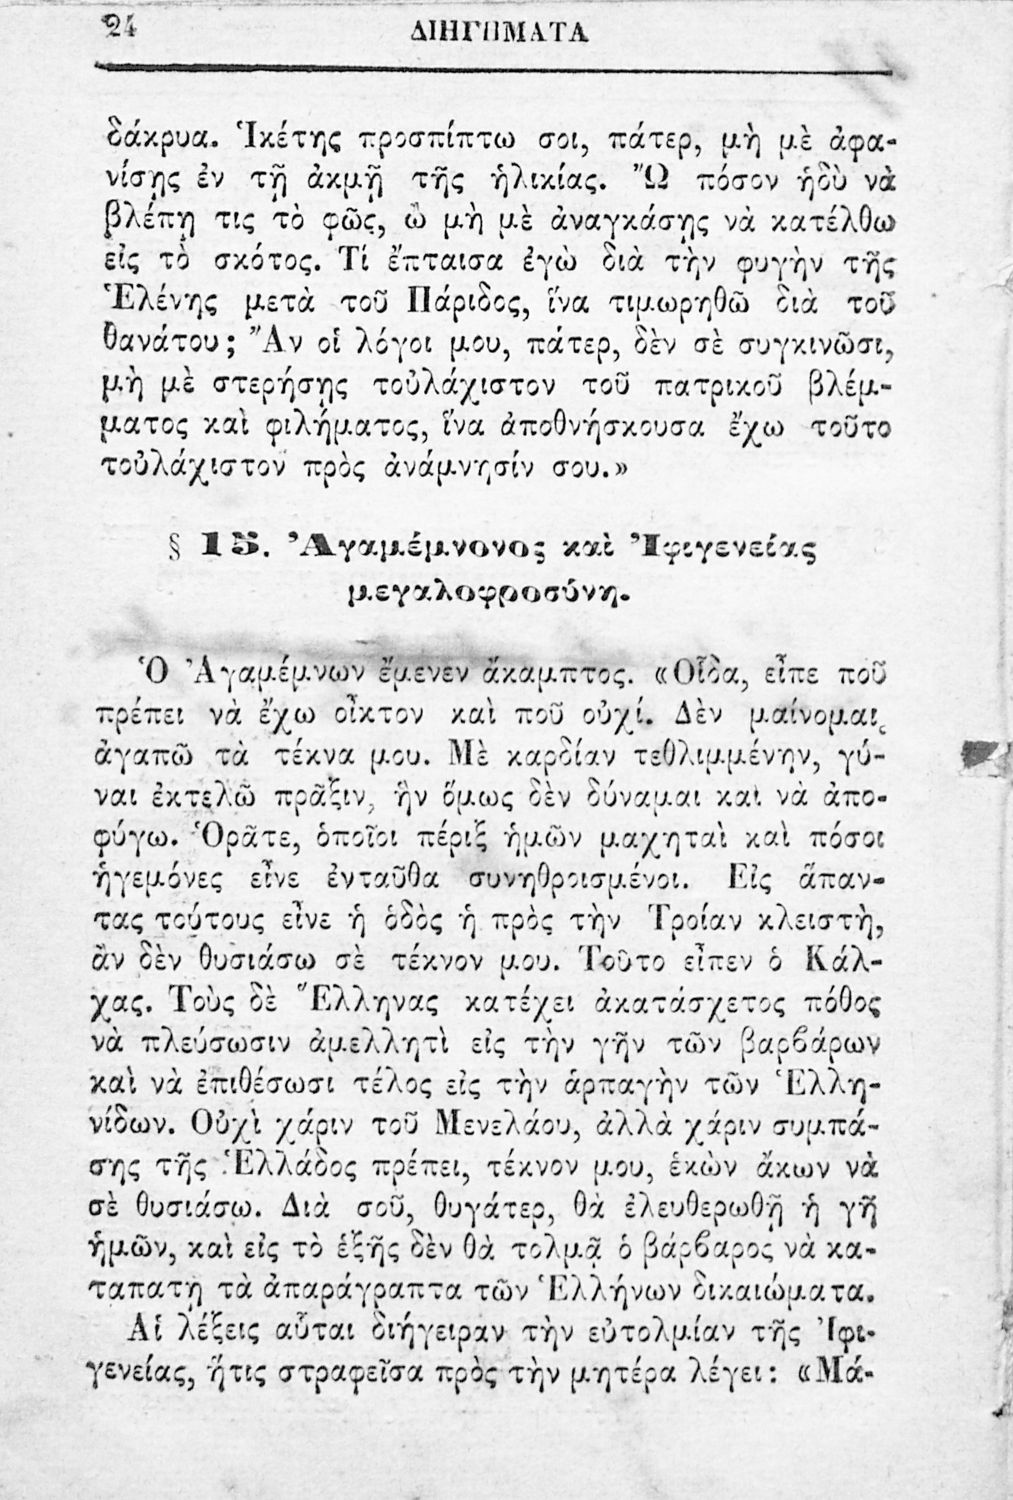 24 ΔΙΗΓΗΜΑΤΑ
δάκρυα. Ἱκέτης προσπίπτω σοι, πάτερ, μὴ μὲ ἀφα-
νίσῃς ἐν τῇ ἀκμῇ τῆς ἡλικίας. Ὢ πόσον ἡδὺ νὰ
βλέπῃ τις τὸ φῶς, ὢ μὴ μὲ ἀναγκάσῃς νὰ κατέλθω
εἰς τὸ σκότος. Τί ἔπταισα ἐγὼ διὰ τὴν φυγὴν τῆς
Ἑλένης μετὰ τοῦ Πάριδος, ἵνα τιμωρηθῶ διὰ τοῦ
θανάτου; Ἂν οἱ λόγοι μου, πάτερ, δὲν σὲ συγκινῶσι,
μὴ μὲ στερήσῃς τοὐλάχιστον τοῦ πατρικοῦ βλέμ-
ματος καὶ φιλήματος, ἵνα ἀποθνήσκουσα ἔχω τοῦτο
τοὐλάχιστον πρὸς ἀνάμνησίν σου.»
§ 15. Ἀγαμέμνονος καὶ Ἰφιγενείας
μεγαλοφροσύνη.
Ὁ Ἀγαμέμνων ἔμενεν ἄκαμπτος. «Οἶδα, εἶπε ποῦ
πρέπει νὰ ἔχω οἶκτον καὶ ποῦ οὐχί. Δὲν μαίνομαι,
ἀγαπῶ τὰ τέκνα μου. Μὲ καρδίαν τεθλιμμένην, γύ-
ναι ἐκτελῶ πρᾶξιν, ἣν ὅμως δὲν δύναμαι καὶ νὰ ἀπο-
φύγω. Ὁρᾶτε, ὁποῖοι πέριξ ἡμῶν μαχηταὶ καὶ πόσοι
ἡγεμόνες εἶνε ἐνταῦθα συνηθροισμένοι. Εἰς ἅπαν-
τας τούτους εἶνε ἡ ὁδὸς ἡ πρὸς τὴν Τροίαν κλειστὴ,
ἂν δὲν θυσιάσω σὲ τέκνον μου. Τοῦτο εἶπεν ὁ Κάλ-
χας. Τοὺς δὲ Ἕλληνας κατέχει ἀκατάσχετος πόθος
νὰ πλεύσωσιν ἀμελλητὶ εἰς τὴν γῆν τῶν βαρβάρων
καὶ νὰ ἐπιθέσωσι τέλος εἰς τὴν ἁρπαγὴν τῶν Ἑλλη-
νίδων. Οὐχὶ χάριν τοῦ Μενελάου, ἀλλὰ χάριν συμπά-
σης τῆς Ἑλλάδος πρέπει, τέκνον μου, ἑκὼν ἄκων νὰ
σὲ θυσιάσω. Διὰ σοῦ, θυγάτερ, θὰ ἐλευθερωθῇ ἡ γῆ
ἡμῶν, καὶ εἰς τὸ ἑξῆς δὲν θὰ τολμᾷ ὁ βάρβαρος νὰ κα-
ταπατῇ τὰ ἀπαράγραπτα τῶν Ἑλλήνων δικαιώματα.
Αἱ λέξεις αὗται διήγειραν τὴν εὐτολμίαν τῆς Ἰφι-
γενείας, ἥτις στραφεῖσα πρὸς τὴν μητέρα λέγει: «Μά-